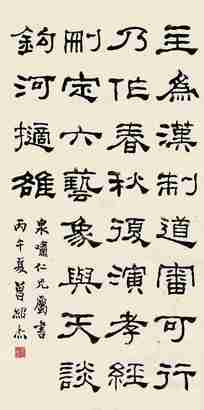 主為漢制道審可行
乃作春秋復演孝經
刪定六藝象與天談
鈎河擿雒
泉嘯仁兄屬書
丙午夏曾紹杰